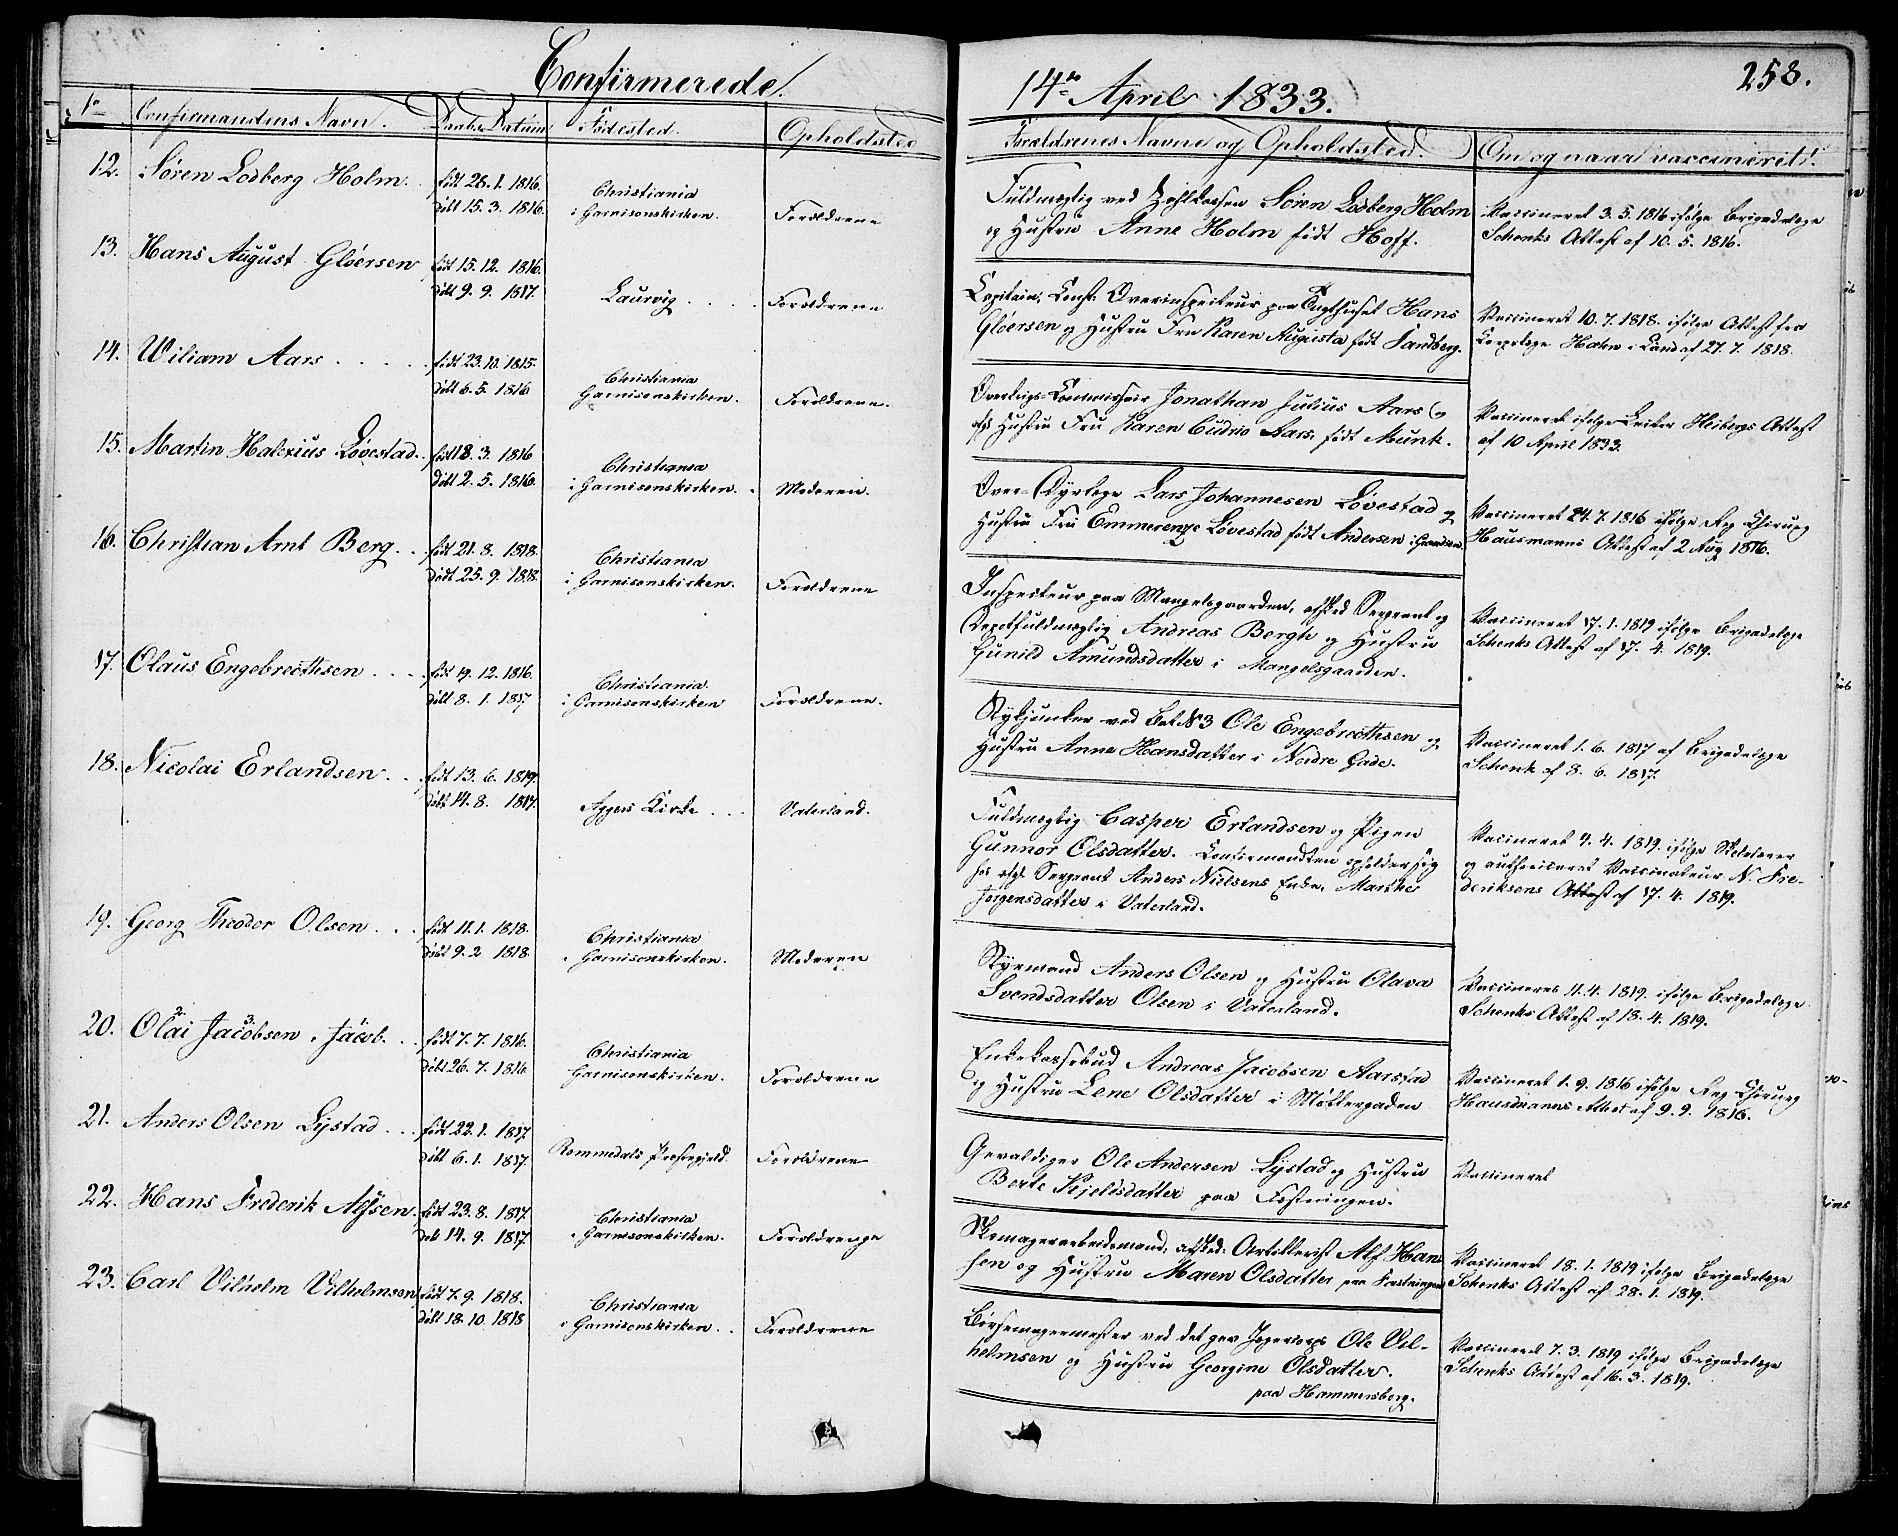 Confirmerede
14de April 1833.
258.
No
Confirmandens Navn.
Daabs Datum
Fødested.
Opholdsted
Foreldrenes Navne og Opholdsted.
Om og naar vaccineret?
12. Søren Lodberg Holm.
født 28. 1. 1816.
døbt 15. 3. 1816.
Christiania
i Garnisonskirken.
Forældrene
Fuldmægtig ved Søren Lodberg Holm
og Hustru Anne Holm født Hoff.
Vaccineret 3. 5. 1816 ifølge Brigadelæge
Schenks Attest af 10. 5. 1816.
13. Hans August Gløersen
født 15. 12. 1816.
døbt 9. 9. 1817.
Laurvig
Forældrene
Capitain, Const: Overinspecteur paa Tugthuset Hans
Gløersen og Hustru Fru Karen Augusta født Sandberg.
Vaccineret 10. 7. 1818. ifølge Attest fra
Corpslæge Hahn i Land af 27. 7. 1818.
14. Wiliam Aars
født 23. 10. 1815.
døbt 6. 5. 1816
Christiania
Garnisonskirken.
Forældrene.
Overkrigs-Commissair Jonathan Julius Aars og
Hustru Fru Karen Aars. født Munk.
Vaccineret ifølge Heibergs Attest
af 10 April 1833.
15. Martin Halexius Løvestad
født 18. 3. 1816
døbt 2. 5. 1816.
Christiania
i Garnisonskirken.
Moderen.
Over-Dyrlæge Lars Johannesen Løvestad og
Hustru Fru Emmerenze Løvestad født Andersen i
Vaccineret 24. 7. 1816 ifølge Reg Chirurg
Hausmanns Attest af 2 Aug 1816.
16. Christian Arnt Berg
født 21. 8. 1818.
døbt 25. 9. 1818.
Christiania
i Garnisonskirken.
Forældrene
Inspecteur paa Mangelsgaarden, afsked Sergeant og
Depotfuldmægtig Andreas Bergh og Hustru
Gunild Amundsdatter i Mangelsgaarden.
Vaccineret 17. 1. 1819 ifølge Brigadelæge
Schenks Attest af 17. 4. 1819.
17. Olaus Engebrecthsen
født 19. 12. 1816.
døbt 8. 1. 1817
Christiania
i Garnisonskirken
Forældrene.
Stykjunker ved Bat. No 3 Ole Engebrecthsen og
Hustru Anne Hansdatter i Nordre Gade.
Vaccineret 1. 6. 1817 af Brigadelæge
Schenk af 8. 6. 1817.
18. Nicolai Erlandsen
født 13. 6. 1819.
døbt 14. 8. 1817.
Aggers Kirke
Vaterland.
Fuldmægtig Casper Erlandsen og Pigen
Gunnor Olsdatter. Confirmanden opholder sig
hos afg. Sergeant Anders Nielsens Enke, Marthe
Jørgensdatter i Vaterland.
Vaccineret 4. 4. 1819. ifølge Skolelærer
og authoriseret Vaccinateur N. Fre-
deriksens Attest af 17. 4. 1819.
19. Georg Theodor Olsen
født 11. 1. 1818.
døbt 9. 2 1818.
Christiania
i Garnisonskirken.
Moderen
Styrmand Anders Olsen og Hustru Olava
Svendsdatter Olsen i Vaterland.
Vaccineret 11. 4. 1819. ifølge Brigadelæge
Schenks Attest af 18. 4. 1819.
20. Olai Jacobsen, Jacob.
født 7. 7. 1816.
døbt 26. 7. 1816
Christiania
Garnisonskirken.
Forældrene
Enkekassebud Andreas Jacobsen Aarstad
og Hustru Lene Olsdatter i Møllergaden
Vaccineret 1. 9. 1816 ifølge Reg Chirurg
Hausmanns Attest af 9. 9. 1816.
21. Anders Olsen Lystad
født 22. 1. 1817.
døbt 6. 1. 1817.
Rommedals Præstegjeld
Forældrene
Gevaldiger Ole Andersen Lystad og Hustru
Berte Kjeldsdatter paa Fæstningen.
Vaccineret
22. Hans Frederik Alfsen.
født 23. 8. 1817.
døbt 14. 9. 1817.
Christiania
i Garnisonskirken.
Forældrenge
Skomagerarbeidsmand, afsked: Artillerist Alf Han-
sen og Hustru Maren Olsdatter paa Fæstningen
Vaccineret 18. 1. 1819 ifølge Brigadelæge
Schenks Attest af 28. 1. 1819.
23. Carl Vilhelm Vilhelmsen
født 7. 9. 1818.
døbt 18. 10. 1818
Christiania
i Garnisonskirken.
Forældrene
Børsemagermester ved det gev. Jægercorps Ole Vil-
helmsen og Hustru Georgine Olsdatter.
paa Hammersborg.
Vaccineret 7. 3. 1819 ifølge Brigadelæge
Schenks Attest af 16. 3. 1819.